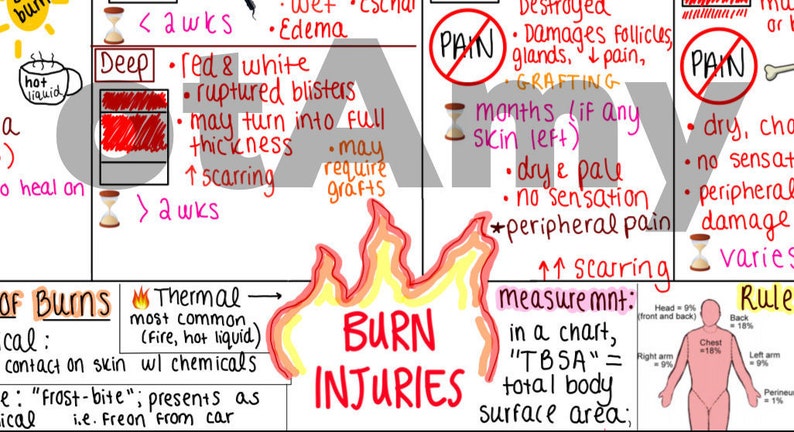 burn
hot
liquid
o heal on
< 2 wks
• Wet • Eschar
• Edema
Deep
• red & white
• ruptured blisters
• may turn into full
thickness
↑ scarring
• may
require
grafts
> 2 wks
PAIN
Destroyed
• Damages follicles,
glands, ↓ pain,
• GRAFTING
months (if any
skin left)
• dry & pale
• no sensation
*peripheral pain
↑↑ scarring
PAIN
or b
• dry, cha
• no sensat
• peripheral
damage
varies
otAmy
of Burns
ical:
contact on skin w/ chemicals
e: "frost-bite"; presents as
ical i.e. Freon from car
Thermal →
most common
(fire, hot liquid)
BURN
INJURIES
measuremnt:
in a chart,
"TBSA" =
total body
surface area;
Rule
Head = 9%
(front and back)
Back
= 18%
Chest
=18%
Right arm
= 9%
Left arm
= 9%
Perineu
= 1%